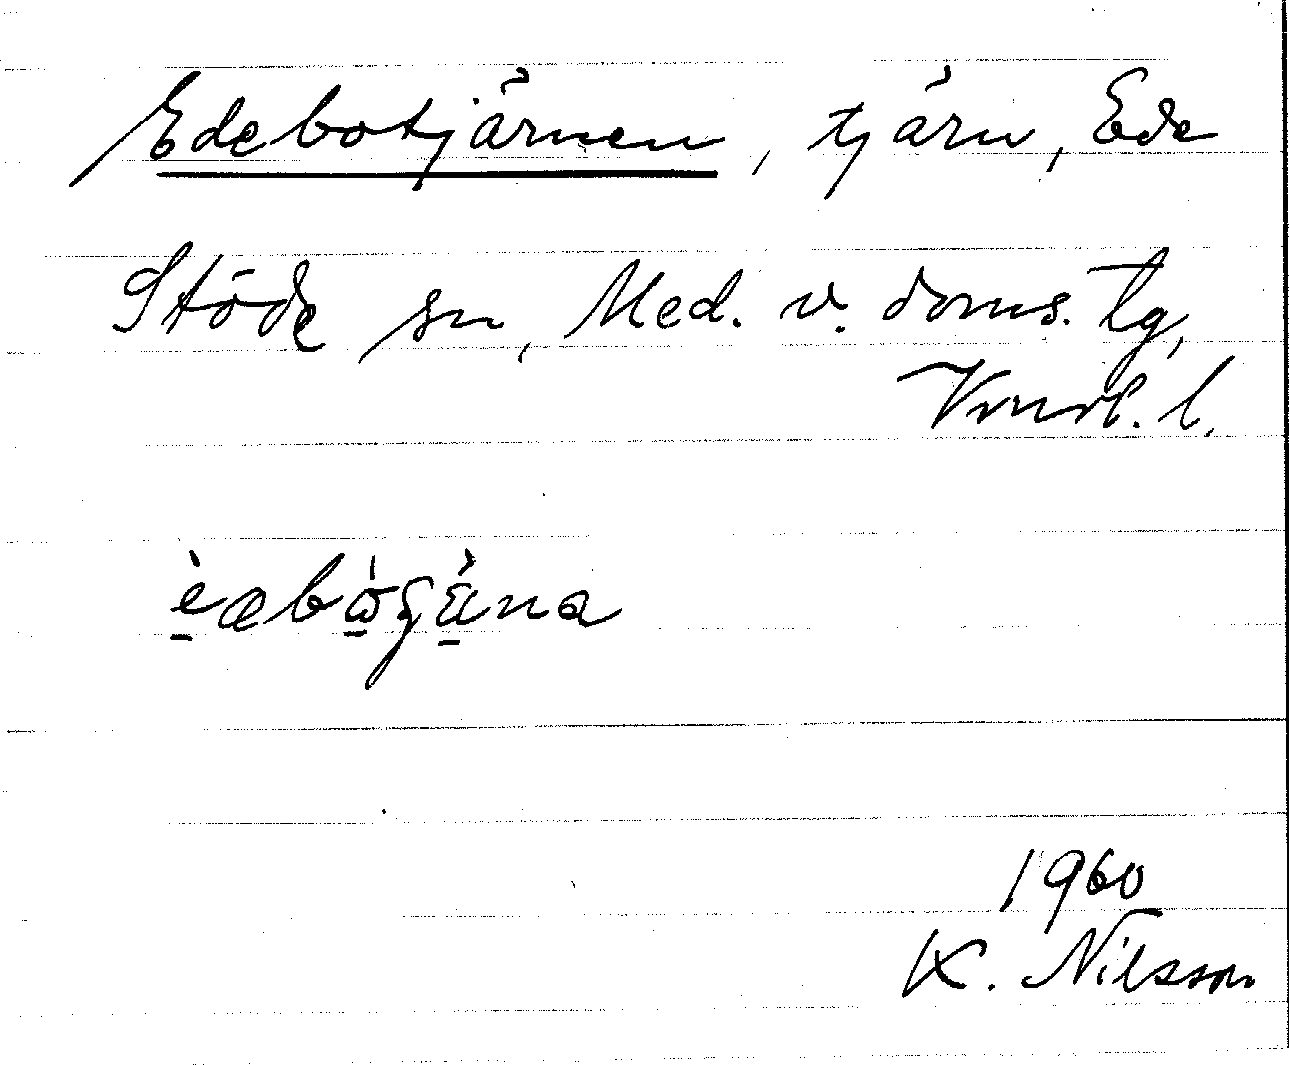 Edebotjärnen, tjärn, Ede
Stöde sn, Med. v. doms. tg,
Vnrl. l.
1960
K. Nilsson